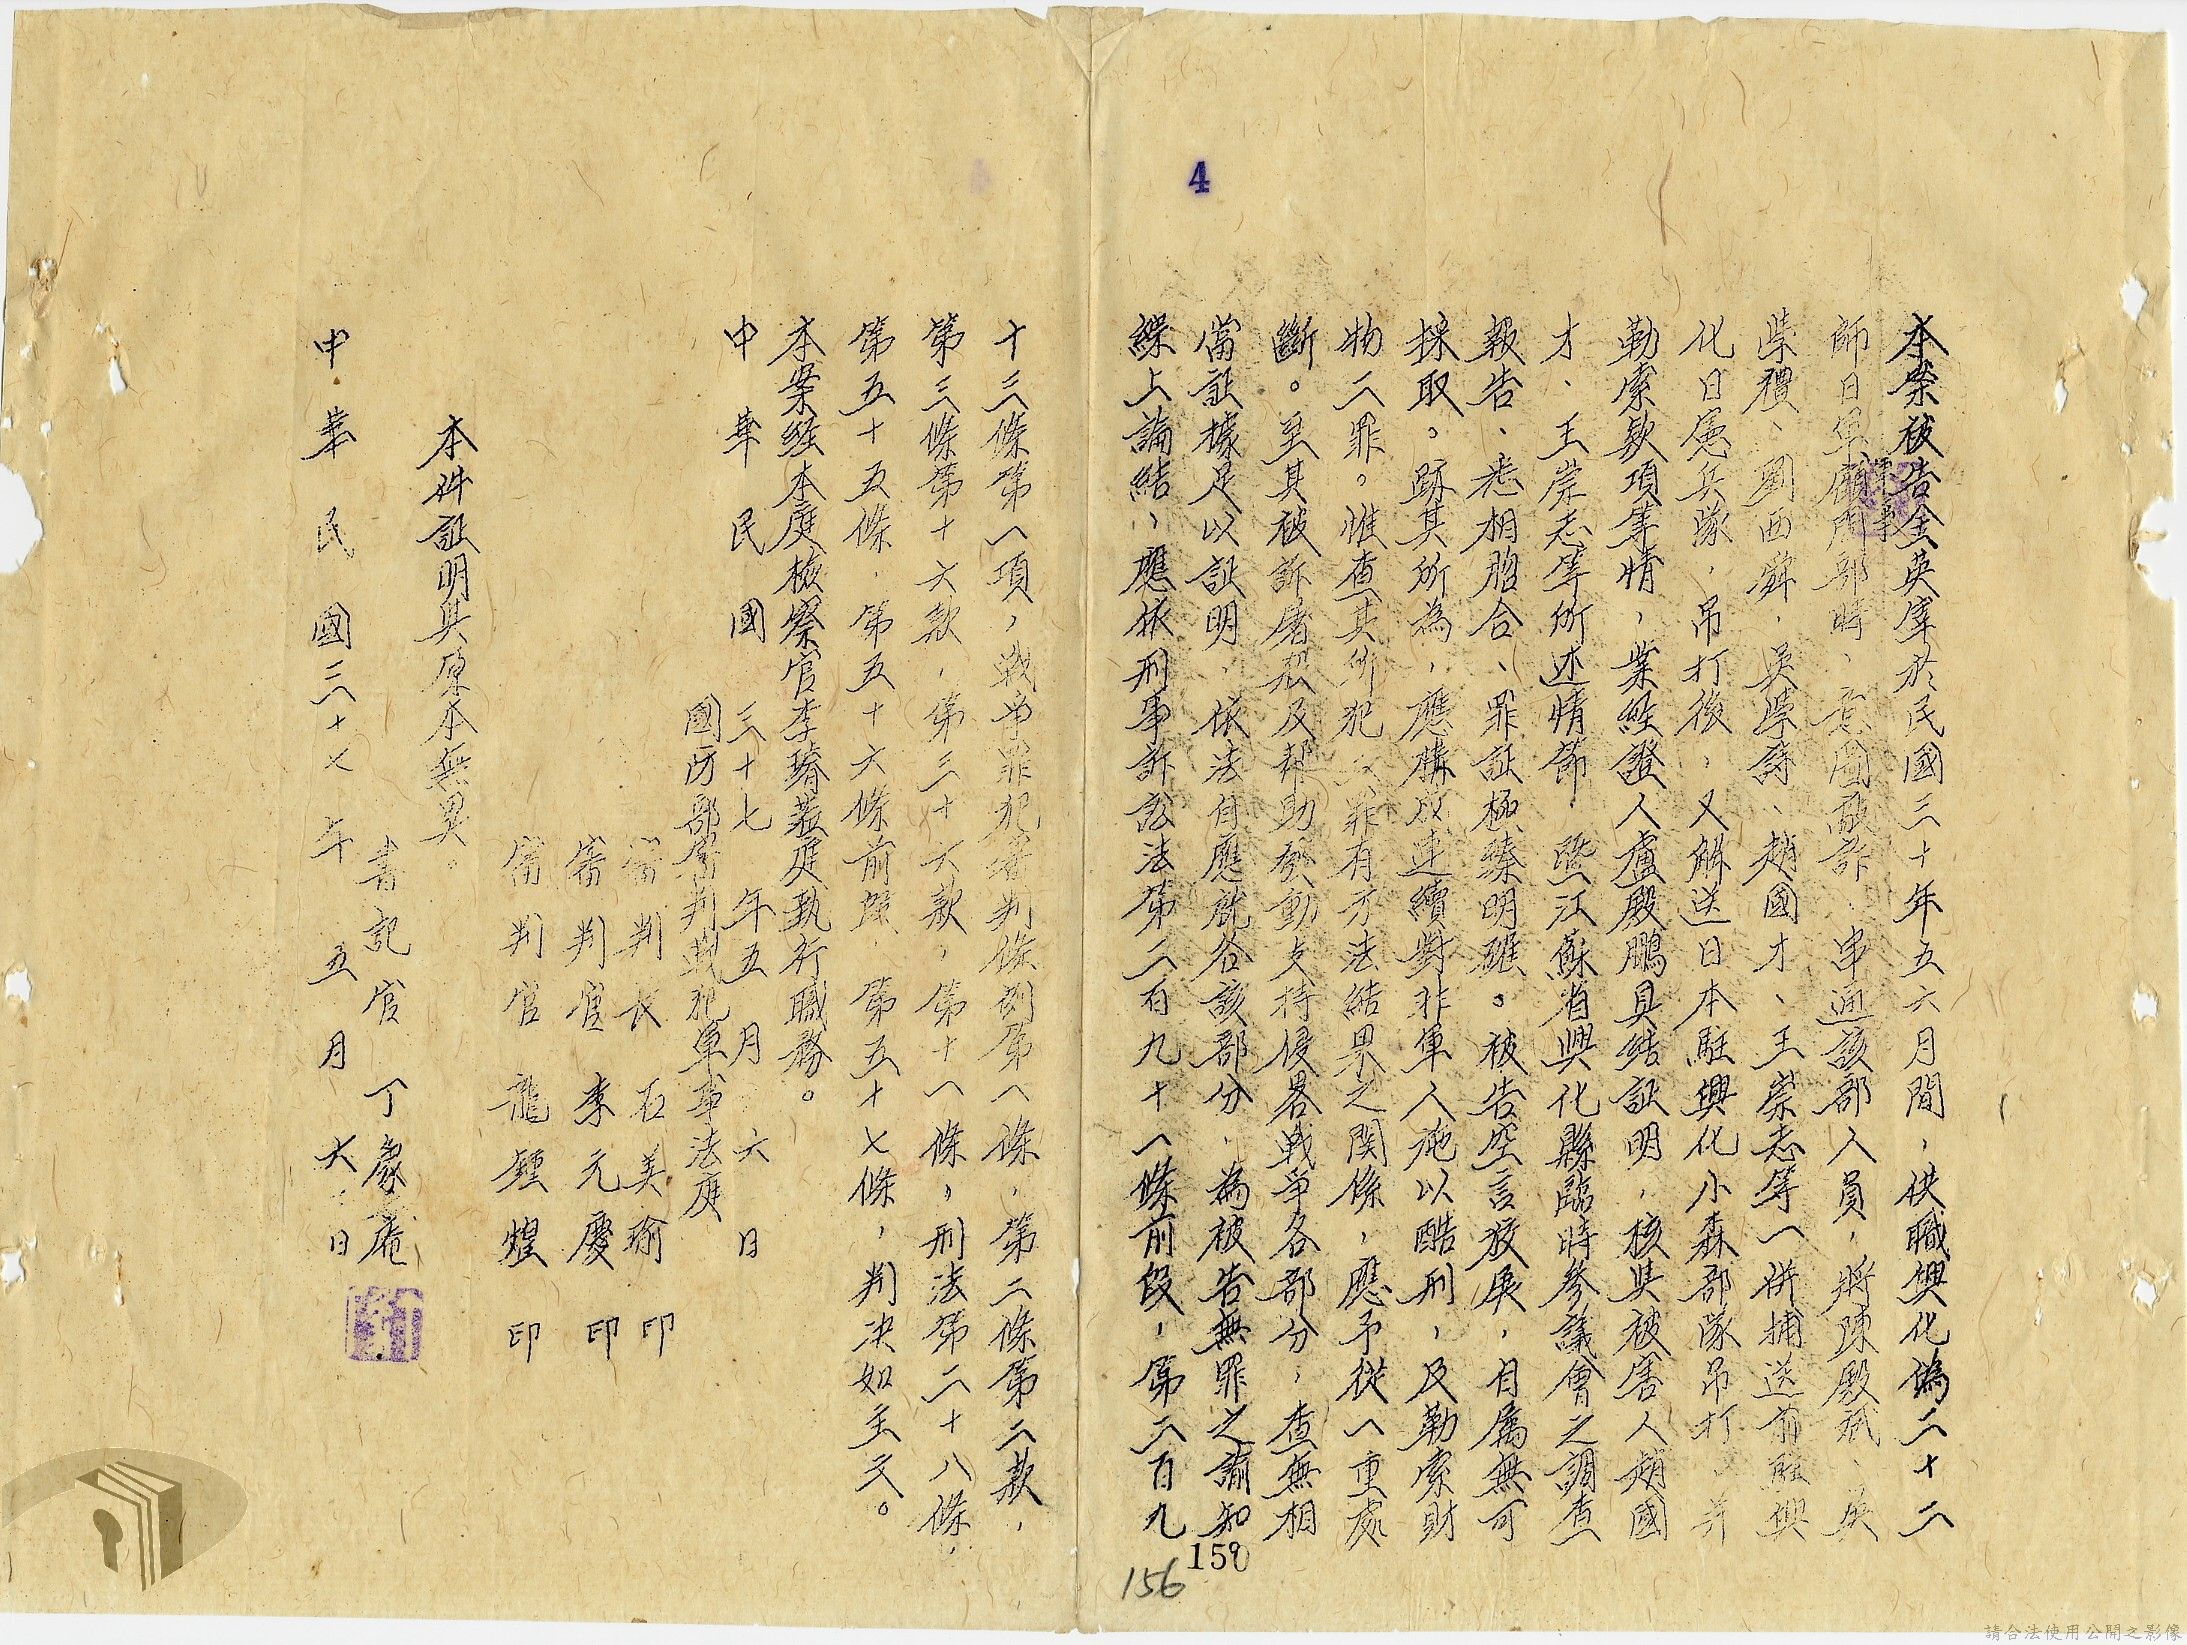 4
本案被告金英庠於民國三十年五六月間，供職興化偽二十二
師日軍顧問部時，意圖敲詐，串通該部人員，將陳殿斌、吳
柴禮、劉西舜、吳學詩、趙國才、王崇志等一併捕送前駐興
化日憲兵隊，吊打後，又解送日本駐興化小森部隊吊打，并
勒索款項等情，業經證人盧殿鵬具結証明，核與被害人趙國
才、王崇志等所述情節，暨江蘇省興化縣臨時參議會之調查
報告、悉相脗合、罪証極臻明確。被告空言狡展，自屬無可
採取。跡其所為，應構成連續對非軍人施以酷刑，及勒索財
物二罪。惟查其所犯二罪有方法結果之関係，應予從一重處
斷。至其被訴屠殺及幫助發動支持侵畧戰爭各部分，查無相
當証據足以証明，依法自應就各該部分，為被告無罪之諭知
綜上論結，應依刑事訴訟法第二百九十一條前段，第二百九
159
156
十三條第一項，戰爭罪犯審判條例第一條，第二條第二款，
第三條第十六款，第三十六款，第十一條，刑法第二十八條，
第五十五條，第五十六條前段，第五十七條，判決如主文。
本案經本庭檢察官李璿蒞庭執行職務。
中華民國三十七年五月六日
國防部審判戰犯軍事法庭
審判長 石美瑜 印
審判官 李元慶 印
審判官 龍鍾煌 印
本件証明與原本無異。
書記官 丁象庵
中華民國三十七年五月 日
請合法使用公開之影像